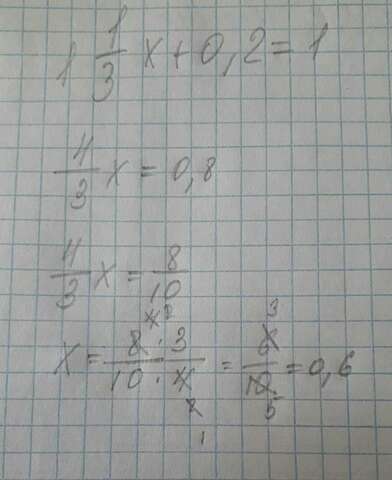 1 1/3 x + 0,2 = 1
4/3 x = 0,8
4/3 x = 8/10
x = 8/10 : 3/4 = 6/10 = 0,6